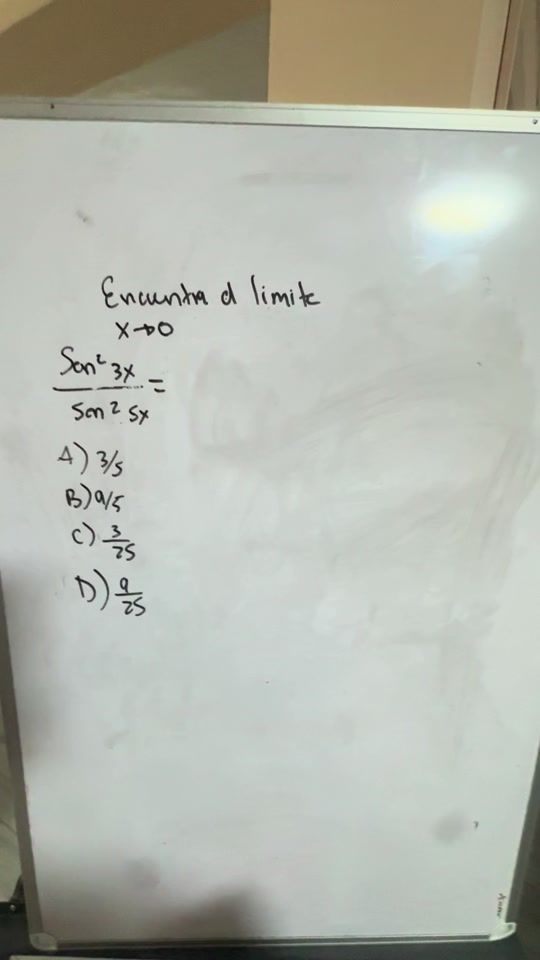 Encuentra el limite
x→0
Sen² 3x
sen² 5x =
A) 3/5
B) 9/5
C) 3/25
D) 9/25